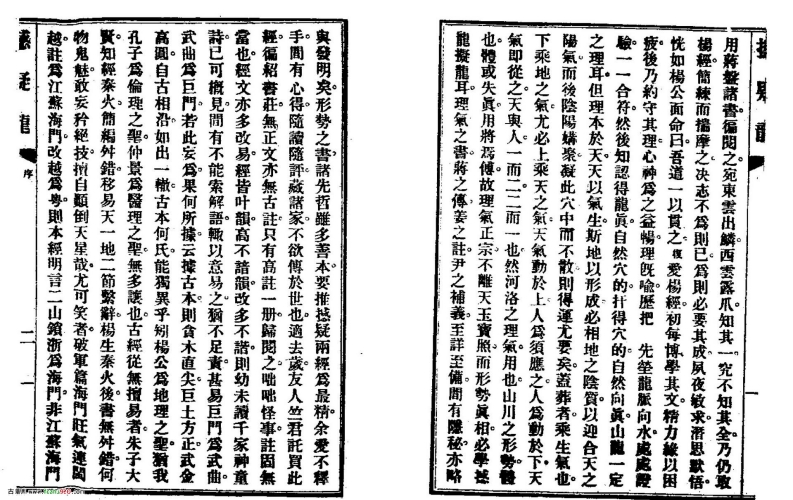 撼龍
用蔣盤諸書徧閱之宛東雲出鱗西雲露爪知其一究不知其全乃仍取
楊經簡練而揣摩之决志不爲則已爲則必要其成夙夜敏求潛思默悟
恍如楊公面命曰吾道一以貫之愛楊經初每博學其文精力緣以困
疲後乃約守其理心神爲之益暢理旣喻歷把 先塋龍脈向水處處證
驗一一合符然後知認得龍眞自然穴的扦得穴的自然向眞山龍一定
之理耳但理本於天天以氣生斯地以形成必相地之陰質以迎合天之
陽氣而後陰陽媾聚凝此穴中而不散則得運尤要矣蓋葬者乘生氣也
下乘地之氣尤必上乘天之氣天氣動於上人爲須應之人爲動於下天
氣即從之天與人一而二二而一也然河洛之理氣用也山川之形勢體
也體或失眞用將焉傅故理氣正宗不離天玉寶照而形勢眞相必學撼
龍擬龍耳理氣之書蔣之傳姜之註尹之補義至詳至僃間有隱秘亦略
與發明矣形勢之書諸先哲雖多善本要推撼疑兩經爲最精余愛不釋
手間有心得隨讀隨許藏諸家不欲傳於世也適去歲友人竺君託買此
經徧紹書莊無正文亦無古註只有高註一册歸閱之咄咄怪事註固無
當也經文亦多改易經皆叶韻高不諳韻改多不諧則幼未讀千家神童
詩已可概見間有不能索解語輒以意易之猶不足責甚易巨門爲武曲
武曲爲巨門若此妄爲果何所據云據古本則貪木直尖巨土方正武金
高圓自古相沿如出一轍古本何氏能獨異乎矧楊公爲地理之聖猶我
孔子爲倫理之聖仲景爲醫理之聖無多讓也古經從無擅易者朱子大
賢知經秦火簡編舛錯移易天一地二節繫辭楊生秦火後書無舛錯何
物鬼魅敢妄矜絕技擅自顛倒天星哉尤可笑者破軍篇海門旺氣連閩
越註爲江蘇海門改越爲粤則本經明言二山鎖浙爲海門非江蘇海門
疑龍
序
二